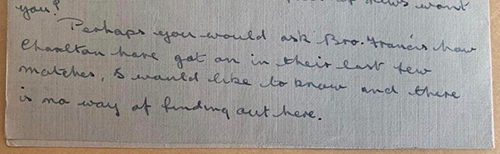 you? of news wont
Perhaps you would ask Bro. Francis how
Charlton have got on in their last few
matches, I would like to know and there
is no way of finding out here.